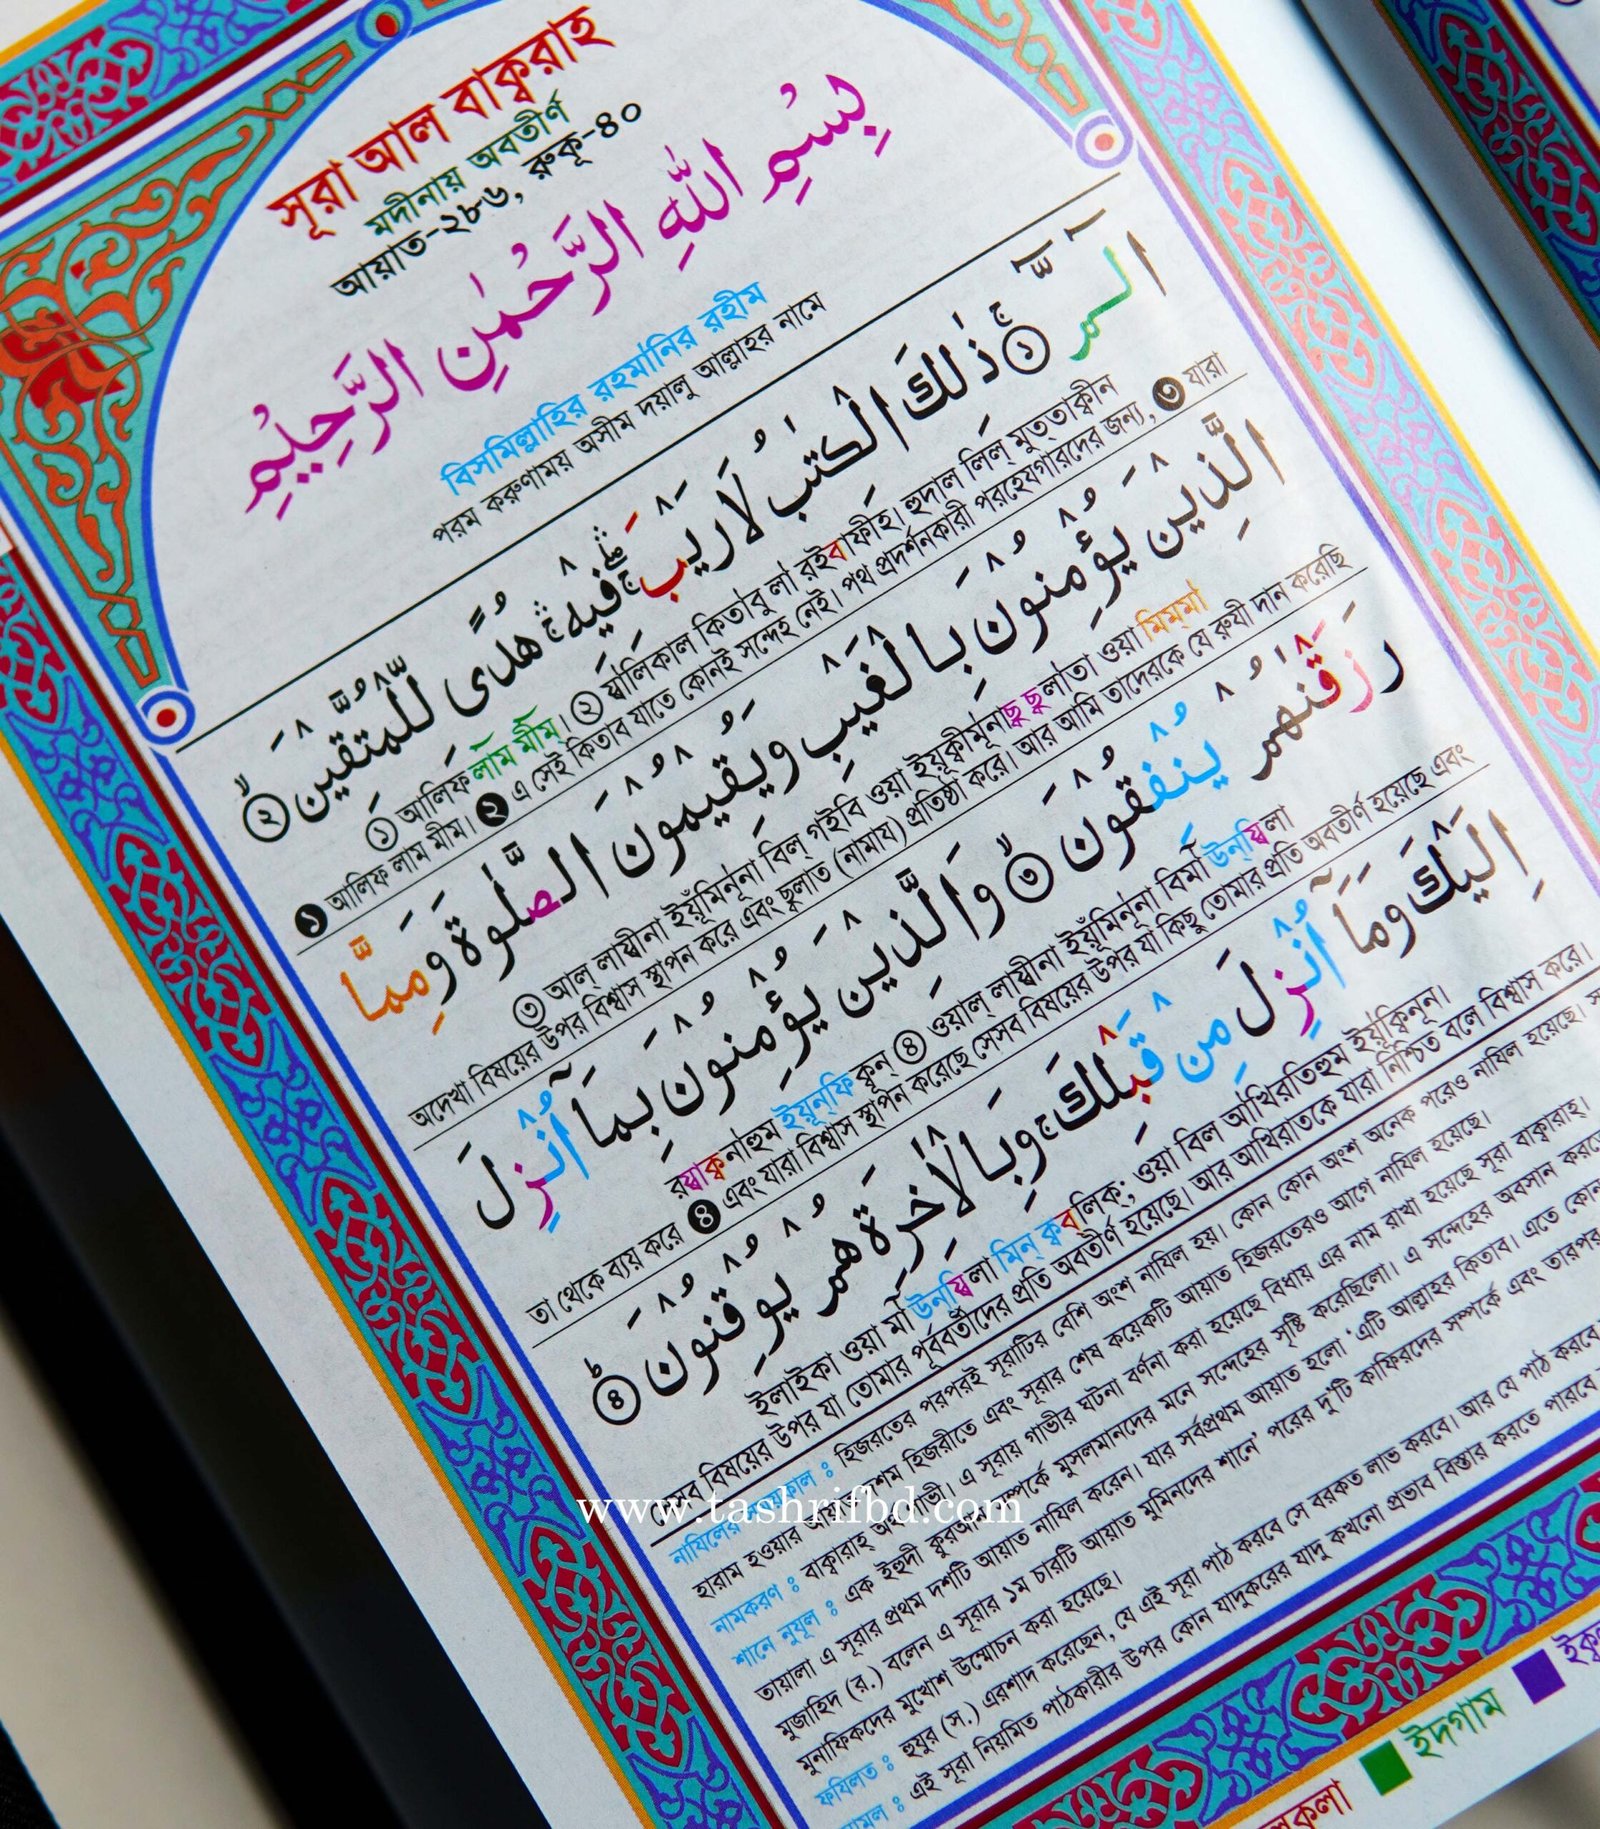 সূরা আল বাক্বরাহ
মদীনায় অবতীর্ণ
আয়াত-২৮৬, রুকূ-৪০
بِسْمِ اللّٰهِ الرَّحْمٰنِ الرَّحِيْمِ
বিসমিল্লাহির রহমানির রহীম
পরম করুণাময় অসীম দয়ালু আল্লাহর নামে
الٓمّٓ ۚ ① ذٰلِكَ الْكِتٰبُ لَا رَيْبَ ۛ فِيْهِ ۛ هُدًى لِّلْمُتَّقِيْنَ ۙ ②
① আলিফ লাম মীম। ② য্বালিকাল কিতাবু লা রইবা ফীহ। হুদাল লিল্ মুত্তাক্বীন
❶ আলিফ লাম মীম। ❷ এ সেই কিতাব যাতে কোনই সন্দেহ নেই। পথ প্রদর্শনকারী পরহেযগারদের জন্য, ❸ যারা
الَّذِيْنَ يُؤْمِنُوْنَ بِالْغَيْبِ وَيُقِيْمُوْنَ الصَّلٰوةَ وَمِمَّا
③ আল্ লায্বীনা ইয়ূমিনূনা বিল্ গইবি ওয়া ইয়ূক্বীমূনাছ্ব ছ্বলাতা ওয়া মিম্মা
অদেখা বিষয়ের উপর বিশ্বাস স্থাপন করে এবং ছ্বলাত (নামায) প্রতিষ্ঠা করে। আর আমি তাদেরকে যে রুযী দান করেছি
رَزَقْنٰهُمْ يُنْفِقُوْنَ ۙ ③ وَالَّذِيْنَ يُؤْمِنُوْنَ بِمَآ اُنْزِلَ
রয্বাক্বনাহুম ইয়ূন্ফি কূন ④ ওয়াল্ লায্বীনা ইয়ূমিনূনা বিমা উন্য্বিলা
তা থেকে ব্যয় করে ❹ এবং যারা বিশ্বাস স্থাপন করেছে সেসব বিষয়ের উপর যা কিছু তোমার প্রতি অবতীর্ণ হয়েছে এবং
اِلَيْكَ وَمَآ اُنْزِلَ مِنْ قَبْلِكَ ۚ وَبِالْاٰخِرَةِ هُمْ يُوْقِنُوْنَ ؕ ④
ইলাইকা ওয়া মা উন্য্বিলা মিন্ ক্ববলিক; ওয়া বিল আখিরতিহুম ইয়ূক্বিনূন।
সেসব বিষয়ের উপর যা তোমার পূর্ববর্তীদের প্রতি অবতীর্ণ হয়েছে। আর আখিরাতকে যারা নিশ্চিত বলে বিশ্বাস করে।
নাযিলের সময়কাল : হিজরতের পরপরই সূরাটির বেশি অংশ নাযিল হয়। কোন কোন অংশ অনেক পরেও নাযিল হয়েছে।
হারাম হওয়ার দশম হিজরীতে এবং সূরার শেষ কয়েকটি আয়াত হিজরতেরও আগে নাযিল হয়েছে।
নামকরণ : বাক্বারাহ্ অর্থ গাভী। এ সূরায় গাভীর ঘটনা বর্ণনা করা হয়েছে বিধায় এর নাম রাখা হয়েছে সূরা বাক্বারাহ।
শানে নুযূল : এক ইহুদী ক্বুরআন সম্পর্কে মুসলমানদের মনে সন্দেহের সৃষ্টি করেছিলো। এ সন্দেহের অবসান করতে
তায়ালা এ সূরার প্রথম দশটি আয়াত নাযিল করেন। যার সর্বপ্রথম আয়াত হলো 'এটি আল্লাহর কিতাব। এতে কোন
মুজাহিদ (র.) বলেন এ সূরার ১ম চারটি আয়াত মুমিনদের শানে' পরের দু'টি কাফিরদের সম্পর্কে এবং তারপর
মুনাফিকদের মুখোশ উম্মোচন করা হয়েছে।
ফযিলত : হুযুর (স.) এরশাদ করেছেন, যে এই সূরা পাঠ করবে সে বরকত লাভ করবে। আর যে পাঠ করবে
এই সূরা নিয়মিত পাঠকারীর উপর কোন যাদুকরের যাদু কখনো প্রভাব বিস্তার করতে পারবে
www.tashrifbd.com
ইদগাম